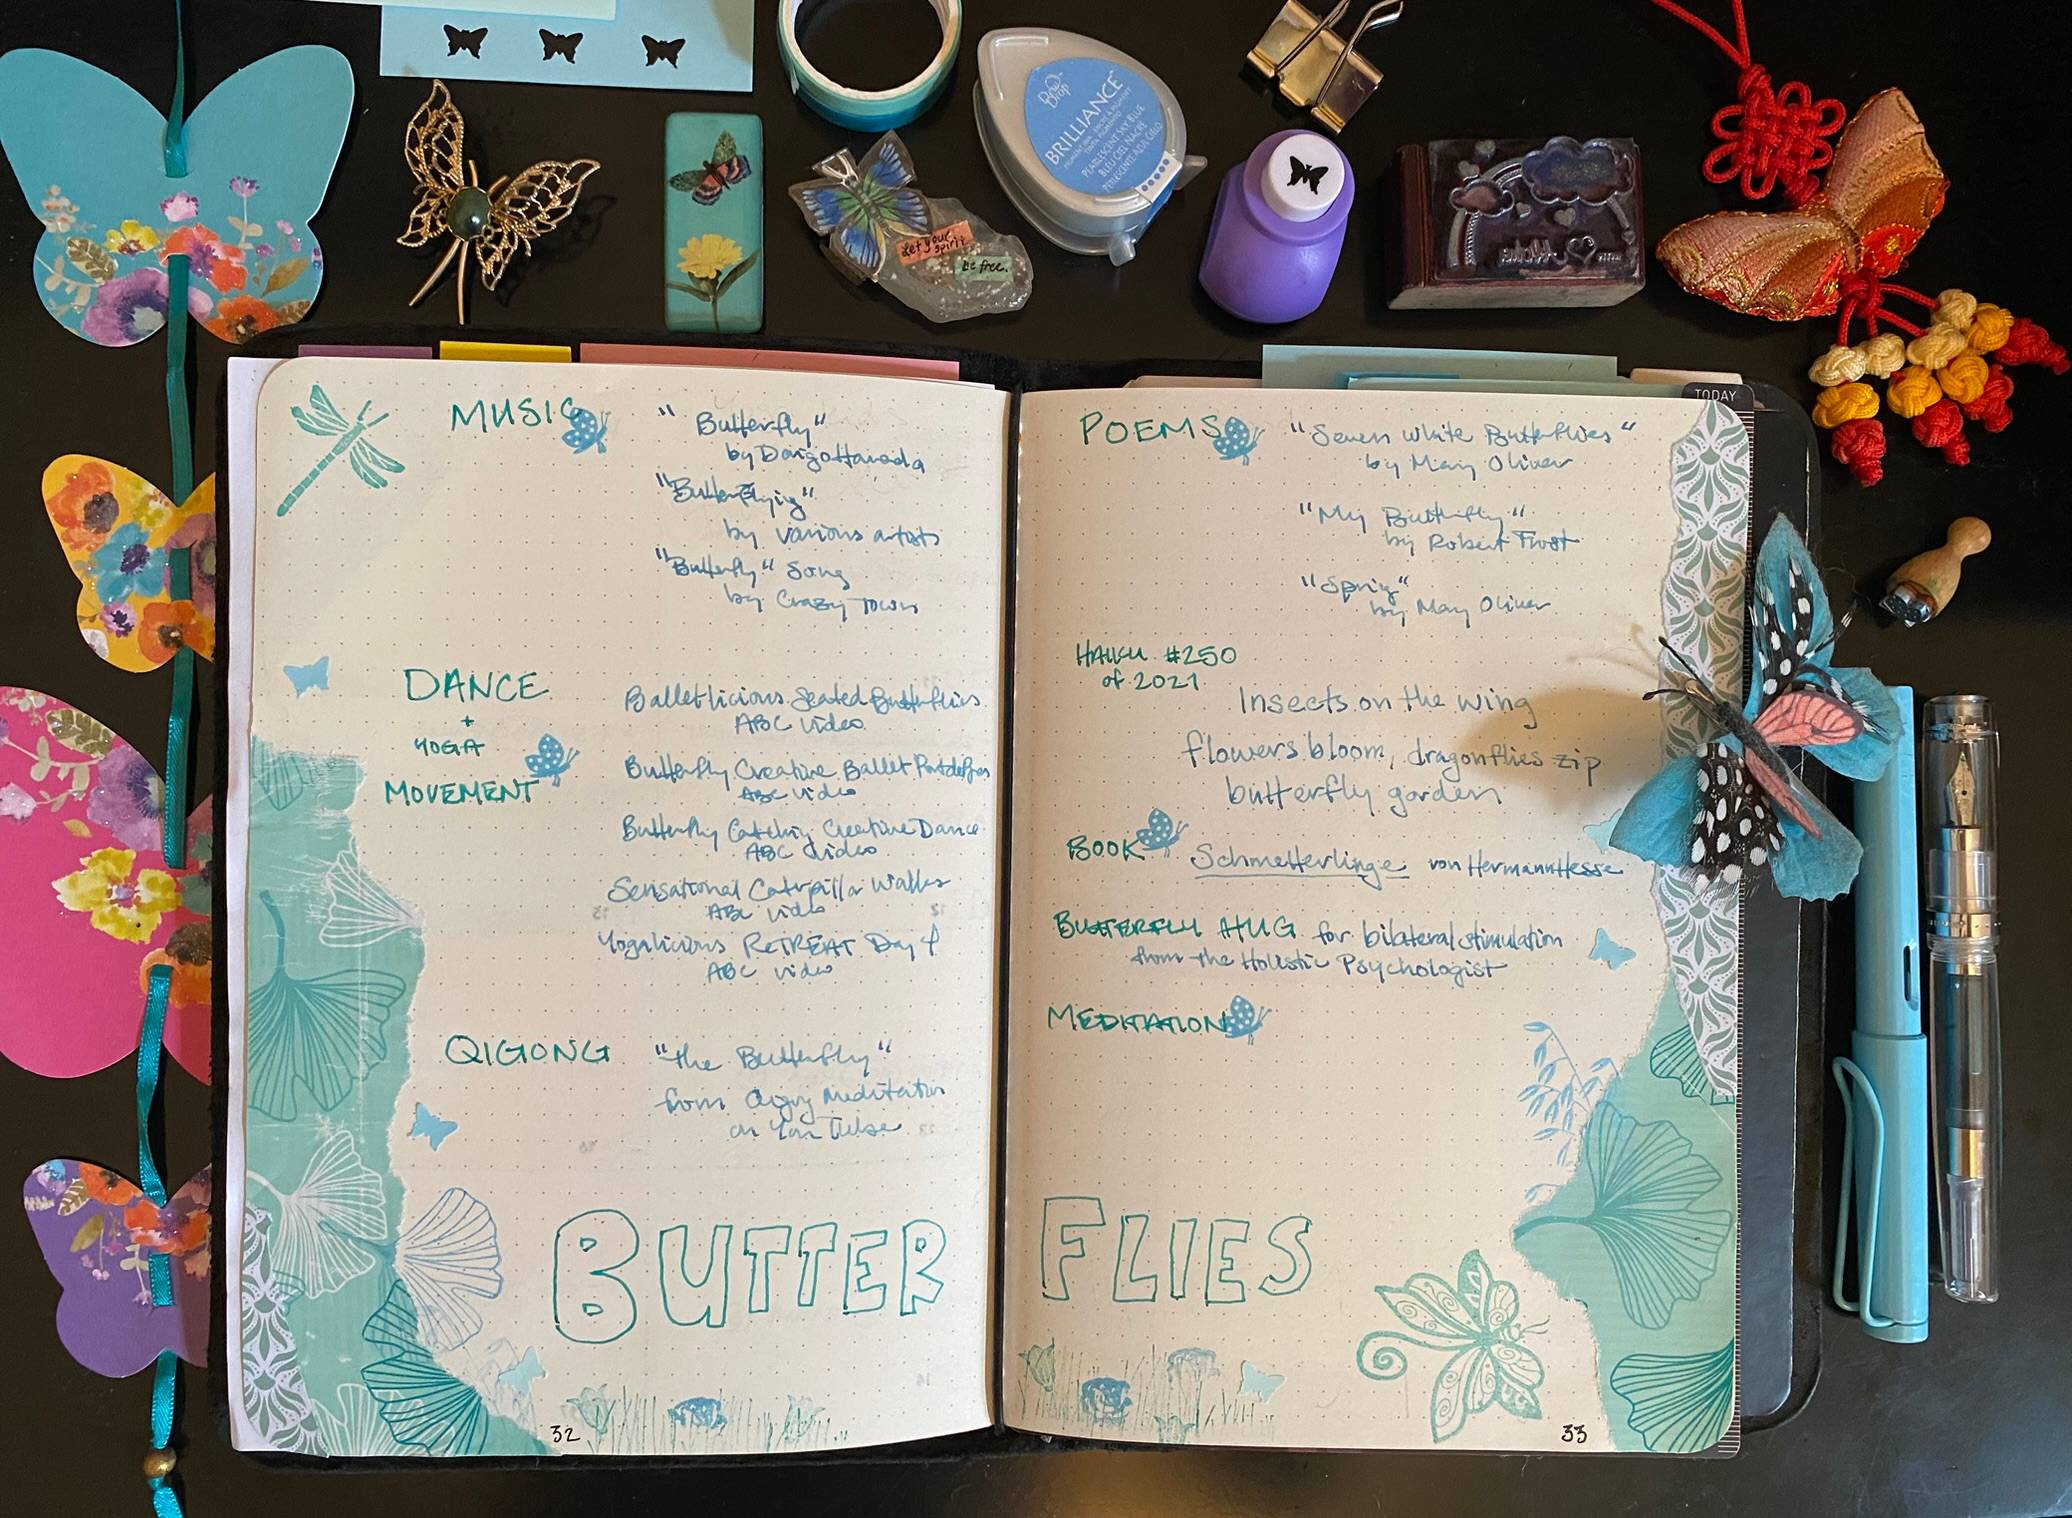 Dew
Drop
BRILLIANCE
PEARLESCENT SKY BLUE
BLEU CIEL NACRÉ
PERLESCENTE AZUL CIELO
Let your
spirit
be free.
TODAY
MUSIC
"Butterfly"
by Daigo Hanada
"Butterflying"
by various artists
"Butterfly" Song
by Crazy Town
DANCE
+
YOGA
MOVEMENT
Balletlicious Seated Butterflies
ABC video
Butterfly Creative Ballet Port de Bras
ABC video
Butterfly Catching Creative Dance
ABC video
Sensational Caterpillar Walks
ABC video
Yogalicious RETREAT Day 4
ABC video
QIGONG
"the Butterfly"
from Qigong Meditation
on YouTube
BUTTER
32
POEMS
"Seven White Butterflies"
by Mary Oliver
"My Butterfly"
by Robert Frost
"Spring"
by Mary Oliver
HAIKU #250
of 2021
Insects on the wing
flowers bloom, dragonflies zip
butterfly garden
BOOK
Schmetterlinge von Hermann Hesse
BUTTERFLY HUG for bilateral stimulation
from the Holistic Psychologist
MEDITATION
FLIES
33